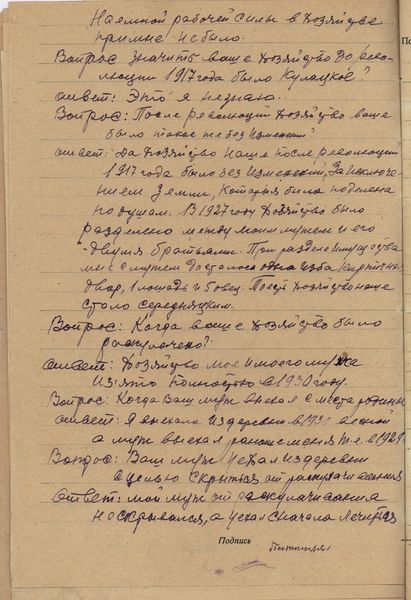 Наемной рабочей силы в хозяйстве
при мне не было.
Вопрос: Значить ваше хозяйство до рево-
люции 1917 года было кулацкое?
Ответ: Этого я незнаю.
Вопрос: После революции хозяйство ваше
было такое же без изменений?
Ответ: Да хозяйство наше после революций
1917 года было без изменений, за исключе-
нием земли, которая была поделена
по душам. В 1927 году хозяйство было
разделено между моим мужем и его
двумя братьями. При разделе имущества
мне с мужем досталось одна изба
двор, 1 лошадь и 5 овец. После хозяйство наше
стало середняцким.
Вопрос: Когда ваше хозяйство было
раскулачено?
Ответ: Хозяйство мое и моего мужа
изъято полностью в 1930 году.
Вопрос: Когда ваш муж выехал с места родины
Ответ: Я выехала из деревни в весной
а муж выехал раньше меня т.е. в 1929
Вопрос: Ваш муж уехал из деревни
с целью скрыться от раскулачивания
Ответ: Мой муж от раскулачивания
не скрывался, а уехал сначала лечиться
Подпись